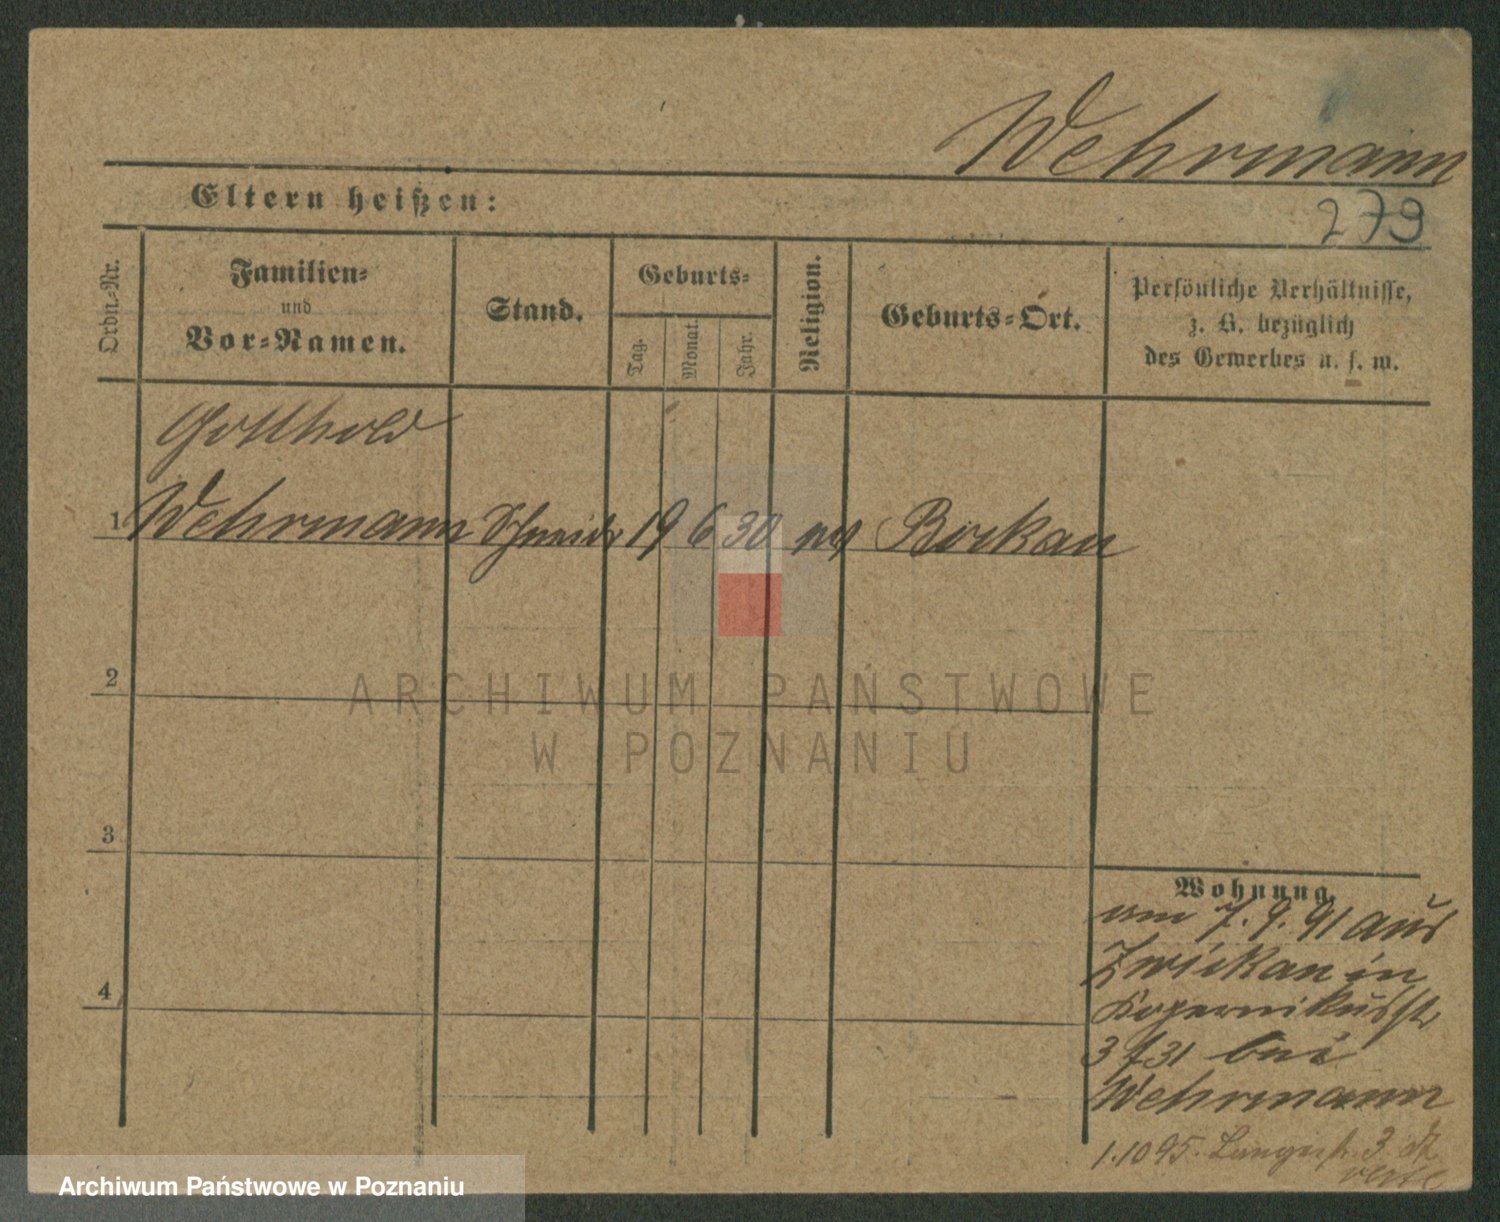 Wehrmann
Eltern heißen:
279
Ordn.-Nr.
Familien-
und
Vor-Namen.
Stand.
Geburts-
Tag.
Monat.
Jahr.
Religion.
Geburts-Ort.
Persönliche Verhältnisse,
z. B. bezüglich
des Gewerbes u. s. w.
Gotthold
1 Wehrmann Schneider 19 6 30 ev Bockau
2
ARCHIWUM PAŃSTWOWE
W POZNANIU
3
Wohnung.
am 7. 9. 91 aus
Zwickau in
Kopernikusstr
3 bei
4
Wehrmann
1.10 95. Langestr. 3
Archiwum Państwowe w Poznaniu